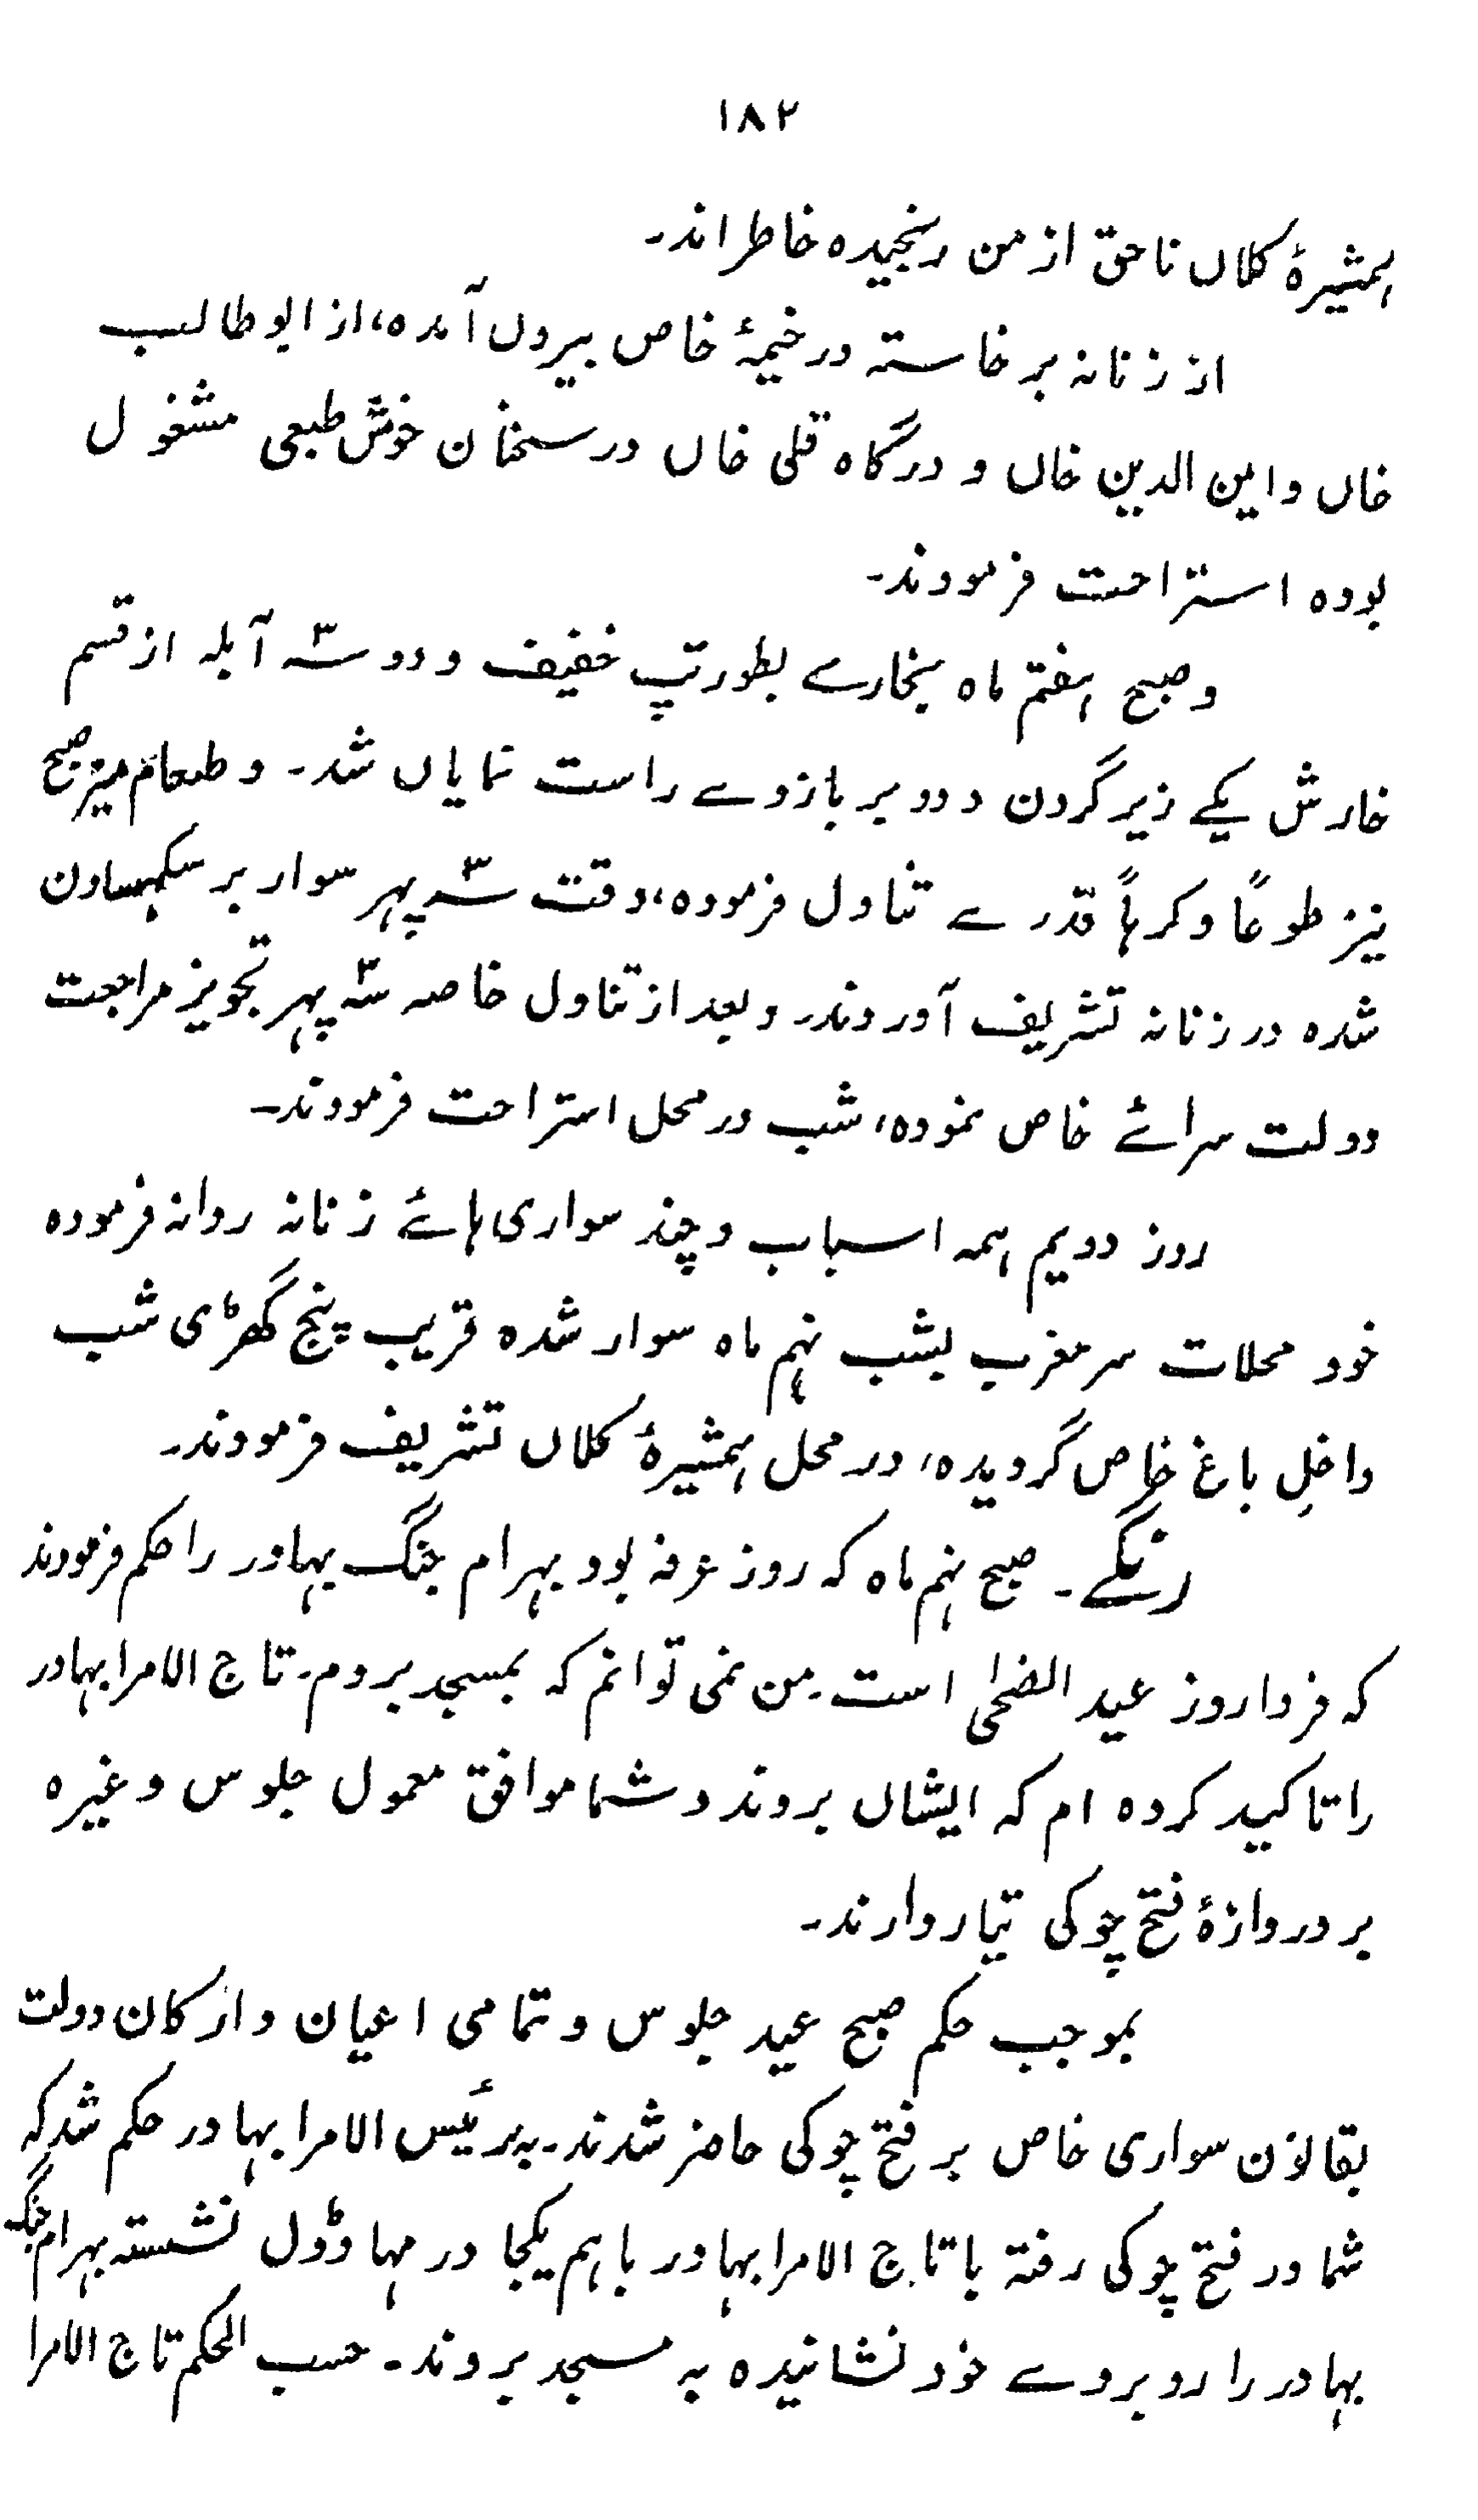 ۱۸۳
ہمشیرۂ کلاں ناحق از من رنجیدہ خاطر اند۔
از زنانہ بر خاستہ در خیمۂ خاص بیروں آمدہ، از ابو طالب
خاں و امین الدین خاں و درگاہ قلی خاں در سخنان خوش طبعی مشغول
بودہ استراحت فرمودند۔
و صبح ہفتم ماہ بخارے بطور تپ خفیف و دو سہ آبلہ از قسم
خارش یکے زیر گردن و دو بر بازوے راست نمایاں شد۔ و طعام میز صبح
نیز طوعاً و کرہاً قدرے تناول فرمودہ، وقت سہ پہر سوار بر سکہساون
شدہ در زنانہ تشریف آوردند۔ و بعد از تناول خاصہ سہ پہر تجویز مراجعت
دولت سرائے خاص نمودہ، شب در محل استراحت فرمودند۔
روز دویم ہمہ اسباب و چند سواری ہائے زنانہ روانہ فرمودہ
خود محلات سر مغرب بشب نہم ماہ سوار شدہ قریب پنج گھڑی شب
داخلِ باغ خاص گردیدہ، در محل ہمشیرۂ کلاں تشریف فرمودند۔
رنگے۔ صبح نہم ماہ کہ روز عرفہ بود بہرام جنگ بہادر را حکم فرمودند
کہ فردا روز عید الضحیٰ است۔ من نمی توانم کہ بمسجد بروم۔ تاج الامرا بہادر
را تاکید کردہ ام کہ ایشاں بروند و شما موافق معمول جلوس وغیرہ
بر دروازۂ فتح چوکی تیار دارند۔
بموجب حکم صبح عید جلوس و تمامی اعیان و ارکان دولت
بقانون سواری خاص بر فتح چوکی حاضر شدند۔ بہ رئیس الامرا بہادر حکم شد کہ
شما در فتح چوکی رفتہ با تاج الامرا بہادر باہم یکجا در مہا ڈول نشستہ بہرام جنگ
بہادر را روبروے خود نشانیدہ بہ مسجد بروند۔ حسب الحکم تاج الامرا